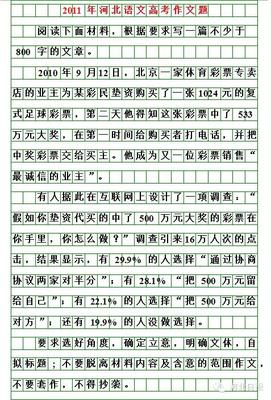 2011 年河北语文高考作文题
阅读下面材料，根据要求写一篇不少于
800 字的文章。
2010 年 9 月 12 日，北京一家体育彩票专卖
店的业主为某彩民垫资购买了一张 1024 元的复
式足球彩票，第二天他得知这张彩票中了 533
万元大奖，在第一时间给购买者打电话，并把
中奖彩票交给买主。他成为又一位彩票销售“
最诚信的业主”。
有人据此在互联网上设计了一项调查：“
假如你垫资代买的中了 500 万元大奖的彩票在
你手里，你怎么做？”调查引来16万人次的点
击。结果显示，有 29.9% 的人选择“通过协商
协议两家对半分”；有 28.1%“把 500 万元留
给自己”；有 22.1% 的人选择“把 500 万元给
对方”；还有 19.9% 的人没做选择。
要求选好角度，确定立意，明确文体，自
拟标题；不要脱离材料内容及含意的范围作文，
不要套作，不得抄袭。